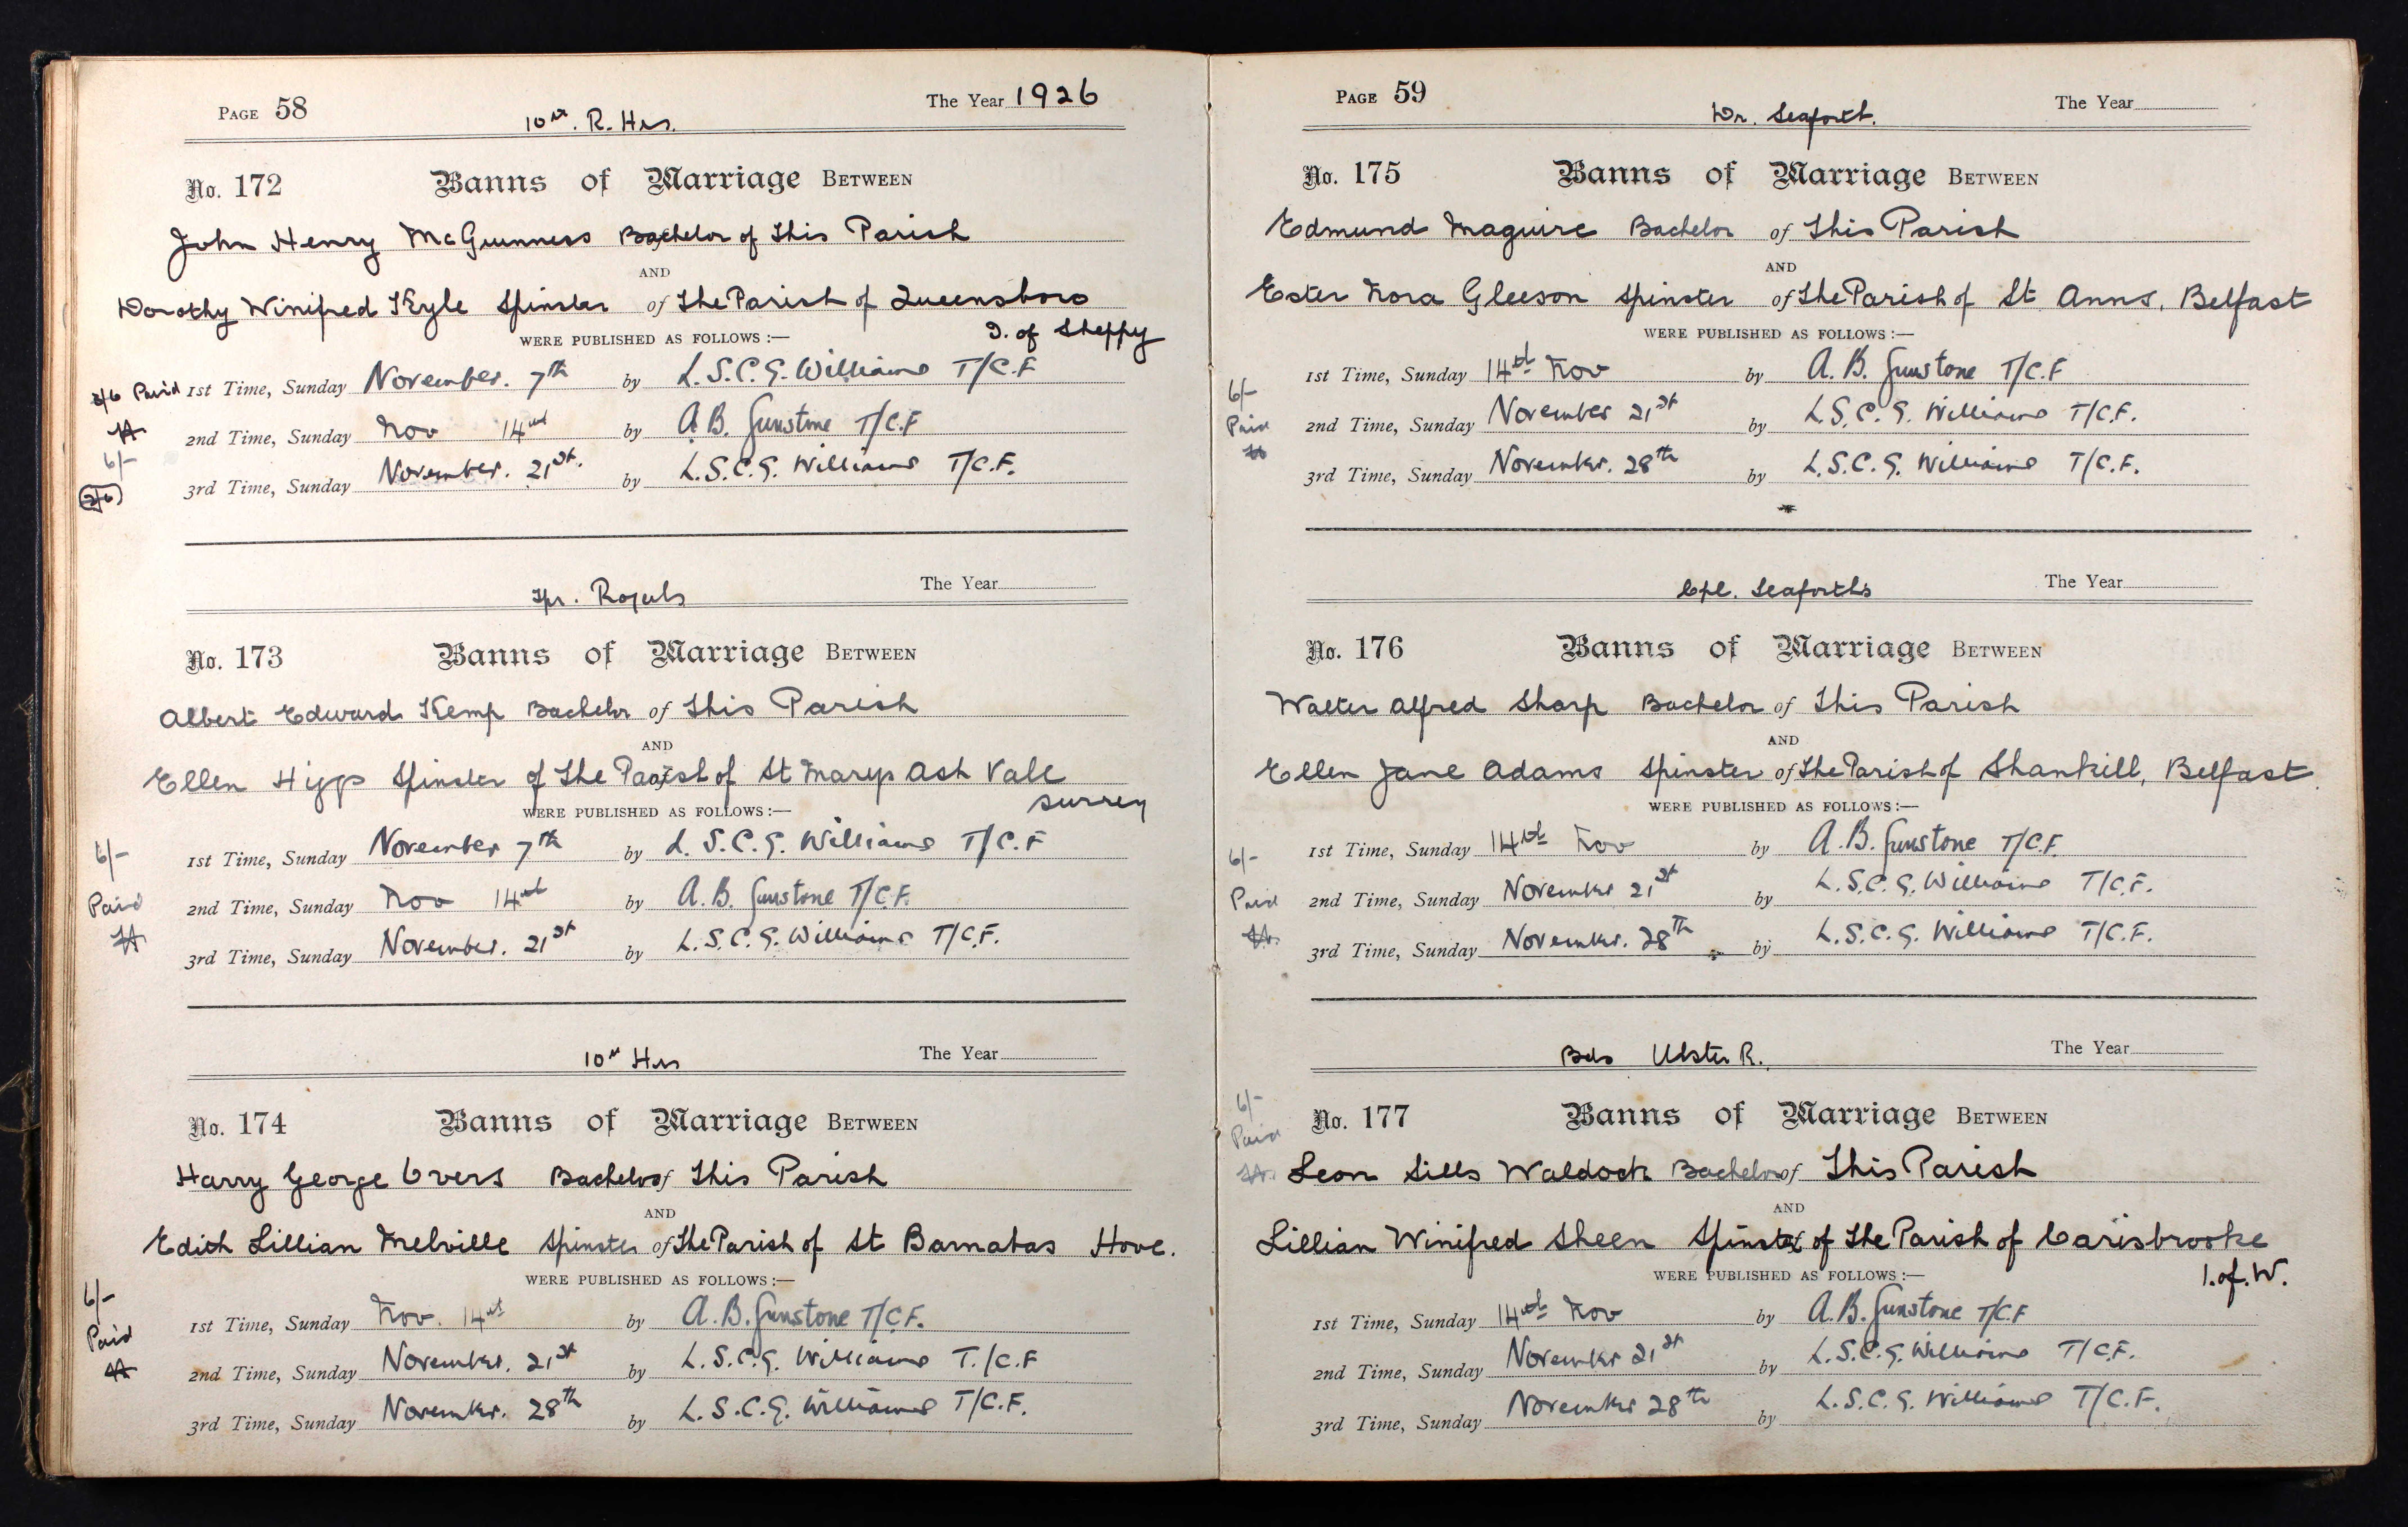 PAGE 58
10th. R. Hrs.
The Year 1926
No. 172 Banns of Marriage BETWEEN
John Henry McGuinness Bachelor of This Parish
AND
Dorothy Winifred Kyle Spinster of The Parish of Queensboro
I. of Sheppy
WERE PUBLISHED AS FOLLOWS :—
Paid 1st Time, Sunday November. 7th by L.S.C.G. Williams T/C.F
2nd Time, Sunday Nov 14th by A.B. Gunstone T/C.F
6/-
3rd Time, Sunday November. 21st. by L.S.C.G. Williams T/C.F.
2/6
Tpr. Royals
The Year
No. 173 Banns of Marriage BETWEEN
Albert Edward Kemp Bachelor of This Parish
AND
Ellen Higgs Spinster of The Parish of St Marys Ash Vale
Surrey
WERE PUBLISHED AS FOLLOWS :—
6/-
1st Time, Sunday November 7th by L.S.C.G. Williams T/C.F
Paid
2nd Time, Sunday Nov 14th by A.B. Gunstone T/C.F.
3rd Time, Sunday November. 21st by L.S.C.G. Williams T/C.F.
10th Hrs
The Year
No. 174 Banns of Marriage BETWEEN
Harry George Overs Bachelor of This Parish
AND
Edith Lillian Melville Spinster of The Parish of St Barnabas Hove.
WERE PUBLISHED AS FOLLOWS :—
6/-
1st Time, Sunday Nov. 14th by A.B. Gunstone T/C.F.
Paid
2nd Time, Sunday November. 21st by L.S.C.G. Williams T./C.F
3rd Time, Sunday November. 28th by L.S.C.G. Williams T/C.F.
PAGE 59
Dr. Seaforth.
The Year
No. 175 Banns of Marriage BETWEEN
Edmund Maguire Bachelor of This Parish
AND
Ester Nora Gleeson Spinster of The Parish of St Anns, Belfast
WERE PUBLISHED AS FOLLOWS :—
1st Time, Sunday 14th Nov by A.B. Gunstone T/C.F
6/-
Paid
2nd Time, Sunday November 21st by L.S.C.G. Williams T/C.F.
3rd Time, Sunday November. 28th by L.S.C.G. Williams T/C.F.
Cpl. Seaforths
The Year
No. 176 Banns of Marriage BETWEEN
Walter Alfred Sharp Bachelor of This Parish
AND
Ellen Jane Adams Spinster of The Parish of Shankill, Belfast.
WERE PUBLISHED AS FOLLOWS :—
6/-
1st Time, Sunday 14th Nov by A.B. Gunstone T/C.F.
Paid
2nd Time, Sunday November 21st by L.S.C.G. Williams T/C.F.
3rd Time, Sunday November. 28th by L.S.C.G. Williams T/C.F.
Ulster R.
The Year
6/-
Paid
No. 177 Banns of Marriage BETWEEN
Leon Sills Waldock Bachelor of This Parish
AND
Lillian Winifred Sheen Spinster of The Parish of Carisbrooke
I. of. W.
WERE PUBLISHED AS FOLLOWS :—
1st Time, Sunday 14th Nov by A.B. Gunstone T/C.F
2nd Time, Sunday November 21st by L.S.C.G. Williams T/C.F.
3rd Time, Sunday November 28th by L.S.C.G. Williams T/C.F.